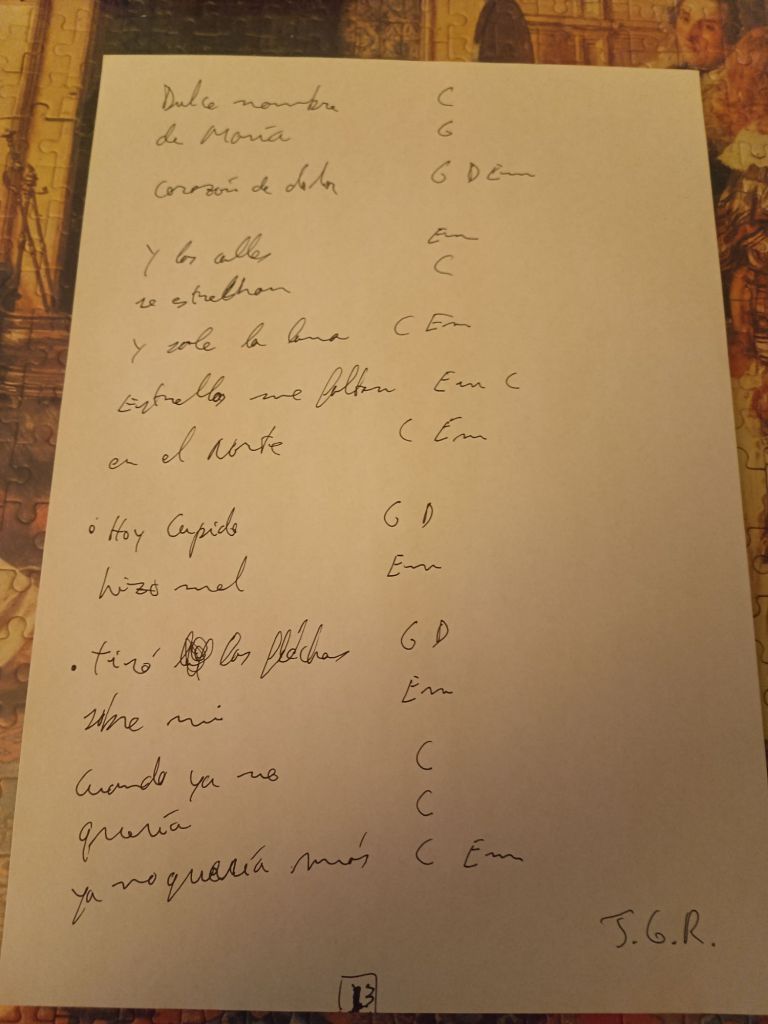 Dulce nombre C
de María G
corazón de dolor G D Em
Y las calles Em
se estrechan C
Y sale la luna C Em
Estrellas me faltan Em C
en el Norte C Em
Hoy Cupido G D
hizo mal Em
. tiró las fléchas G D
sobre mi Em
Cuando ya no C
quería C
ya no quería más C Em
J.G.R.
13